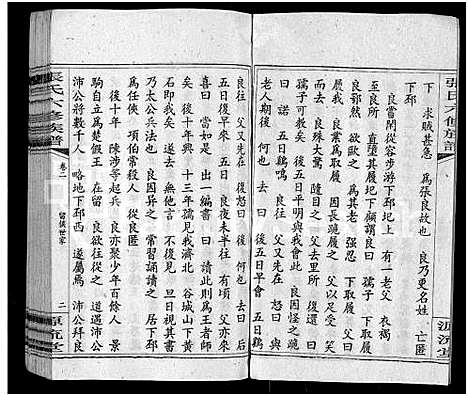 張氏六修族譜
下　求賊甚急　為張良故也　良乃更名姓　亡匿
下邳
良嘗閒從容步游下邳圯上　有一老父　衣褐
至良所　直墮其履圯下顧謂良曰　孺子　下取履
良鄂然　欲歐之　為其老　彊忍　下取履　父曰
履我　良業為取履　因長跪履之　父以足受　笑
而去　良殊大驚　隨目之　父去里所　復還　曰
孺子可教矣　後五日平明與我會此　良因怪之跪
曰　諾　五日平明　良往　父已先在　怒曰　與
老人期後　何也　去曰　後五日早會　五日鷄鳴
良往　父又先在　復怒曰　後　何也　去曰　後
五日復早來　五日　良夜未半往　有頃　父亦來
喜曰　當如是　出一編書　曰　讀此則為王者師
矣　後十年　興　十三年孺子見我濟北　穀城山下黃
石即我矣　遂去　無他言　不復見　旦日視其書
乃太公兵法也　良因異之　常習誦讀之　居下邳
為任俠　項伯常殺人　從良匿
後十年　陳涉等起兵　良亦聚少年百餘人　景
駒自立為楚假王　在留　良欲往從之　道遇沛公
沛公將數千人　略地下邳西　遂屬焉　沛公拜良
張氏六修族譜
卷二
留侯世家
二